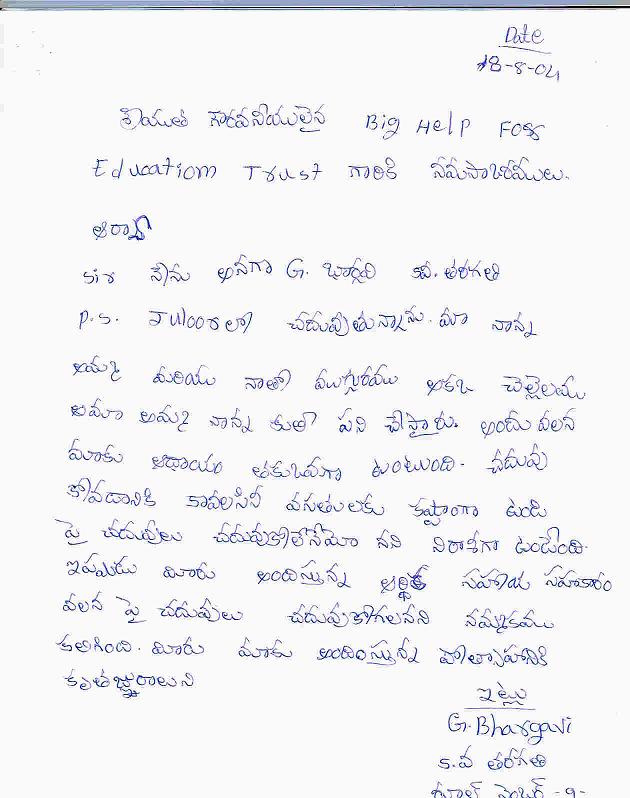 Date
18-8-04
శ్రీయుత గౌరవనీయులైన Big Help For
Education Trust గారికి నమస్కారములు.
ఆర్యా
Sir నేను అనగా G. భార్గవి 5వ. తరగతి
P.S. Juloor లో చదువుతున్నాను. మా నాన్న
అమ్మ మరియు నాతో ముగ్గురము అక్క చెల్లెలము
మా అమ్మ నాన్న కూలి పని చేస్తారు. అందు వలన
మాకు ఆదాయం తక్కువగా ఉంటుంది. చదువు
కోవడానికి కావలసిన వసతులకు కష్టంగా ఉండి
పై చదువులు చదువుకోలేనేమో నని నిరాశగా ఉండేంది.
ఇప్పుడు మీరు అందిస్తున్న ఆర్థిక సహాయ సహకారం
వలన పై చదువులు చదువుకోగలనని నమ్మకము
కలిగింది. మీరు మాకు అందిస్తున్న ప్రోత్సాహానికి
కృతజ్ఞురాలుని
ఇట్లు
G. Bhargavi
5.వ తరగతి
రూల్ నెంబర్ -9-